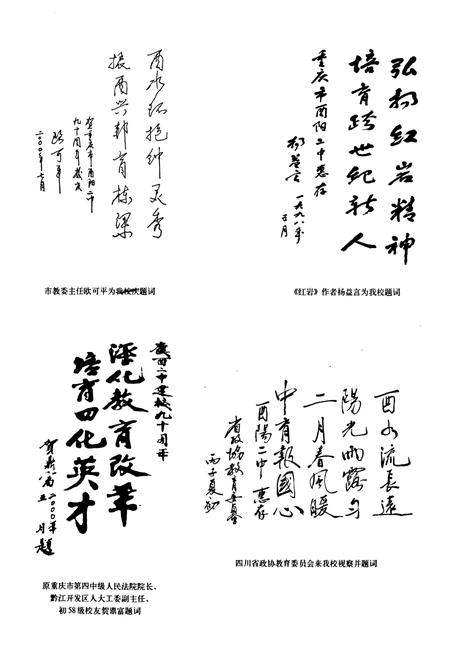 酉水环抱钟灵秀
振酉兴邦育栋梁
贺重庆市酉阳二中
九十周年校庆
欧可平
二〇〇〇年七月
市教委主任欧可平为我校庆题词
弘扬红岩精神
培育跨世纪新人
重庆市酉阳二中惠存
杨益言
一九九八年
五月
《红岩》作者杨益言为我校题词
庆酉二中建校九十周年
深化教育改革
培育四化英才
贺鼎富
二〇〇〇年
五月题
原重庆市第四中级人民法院院长、
黔江开发区人大工委副主任、
初58级校友贺鼎富题词
酉水流長遠
陽光雨露勻
二月春風暖
中育報國心
酉陽二中惠存
省政協教育委員會
丙子夏初
四川省政协教育委员会来我校视察并题词